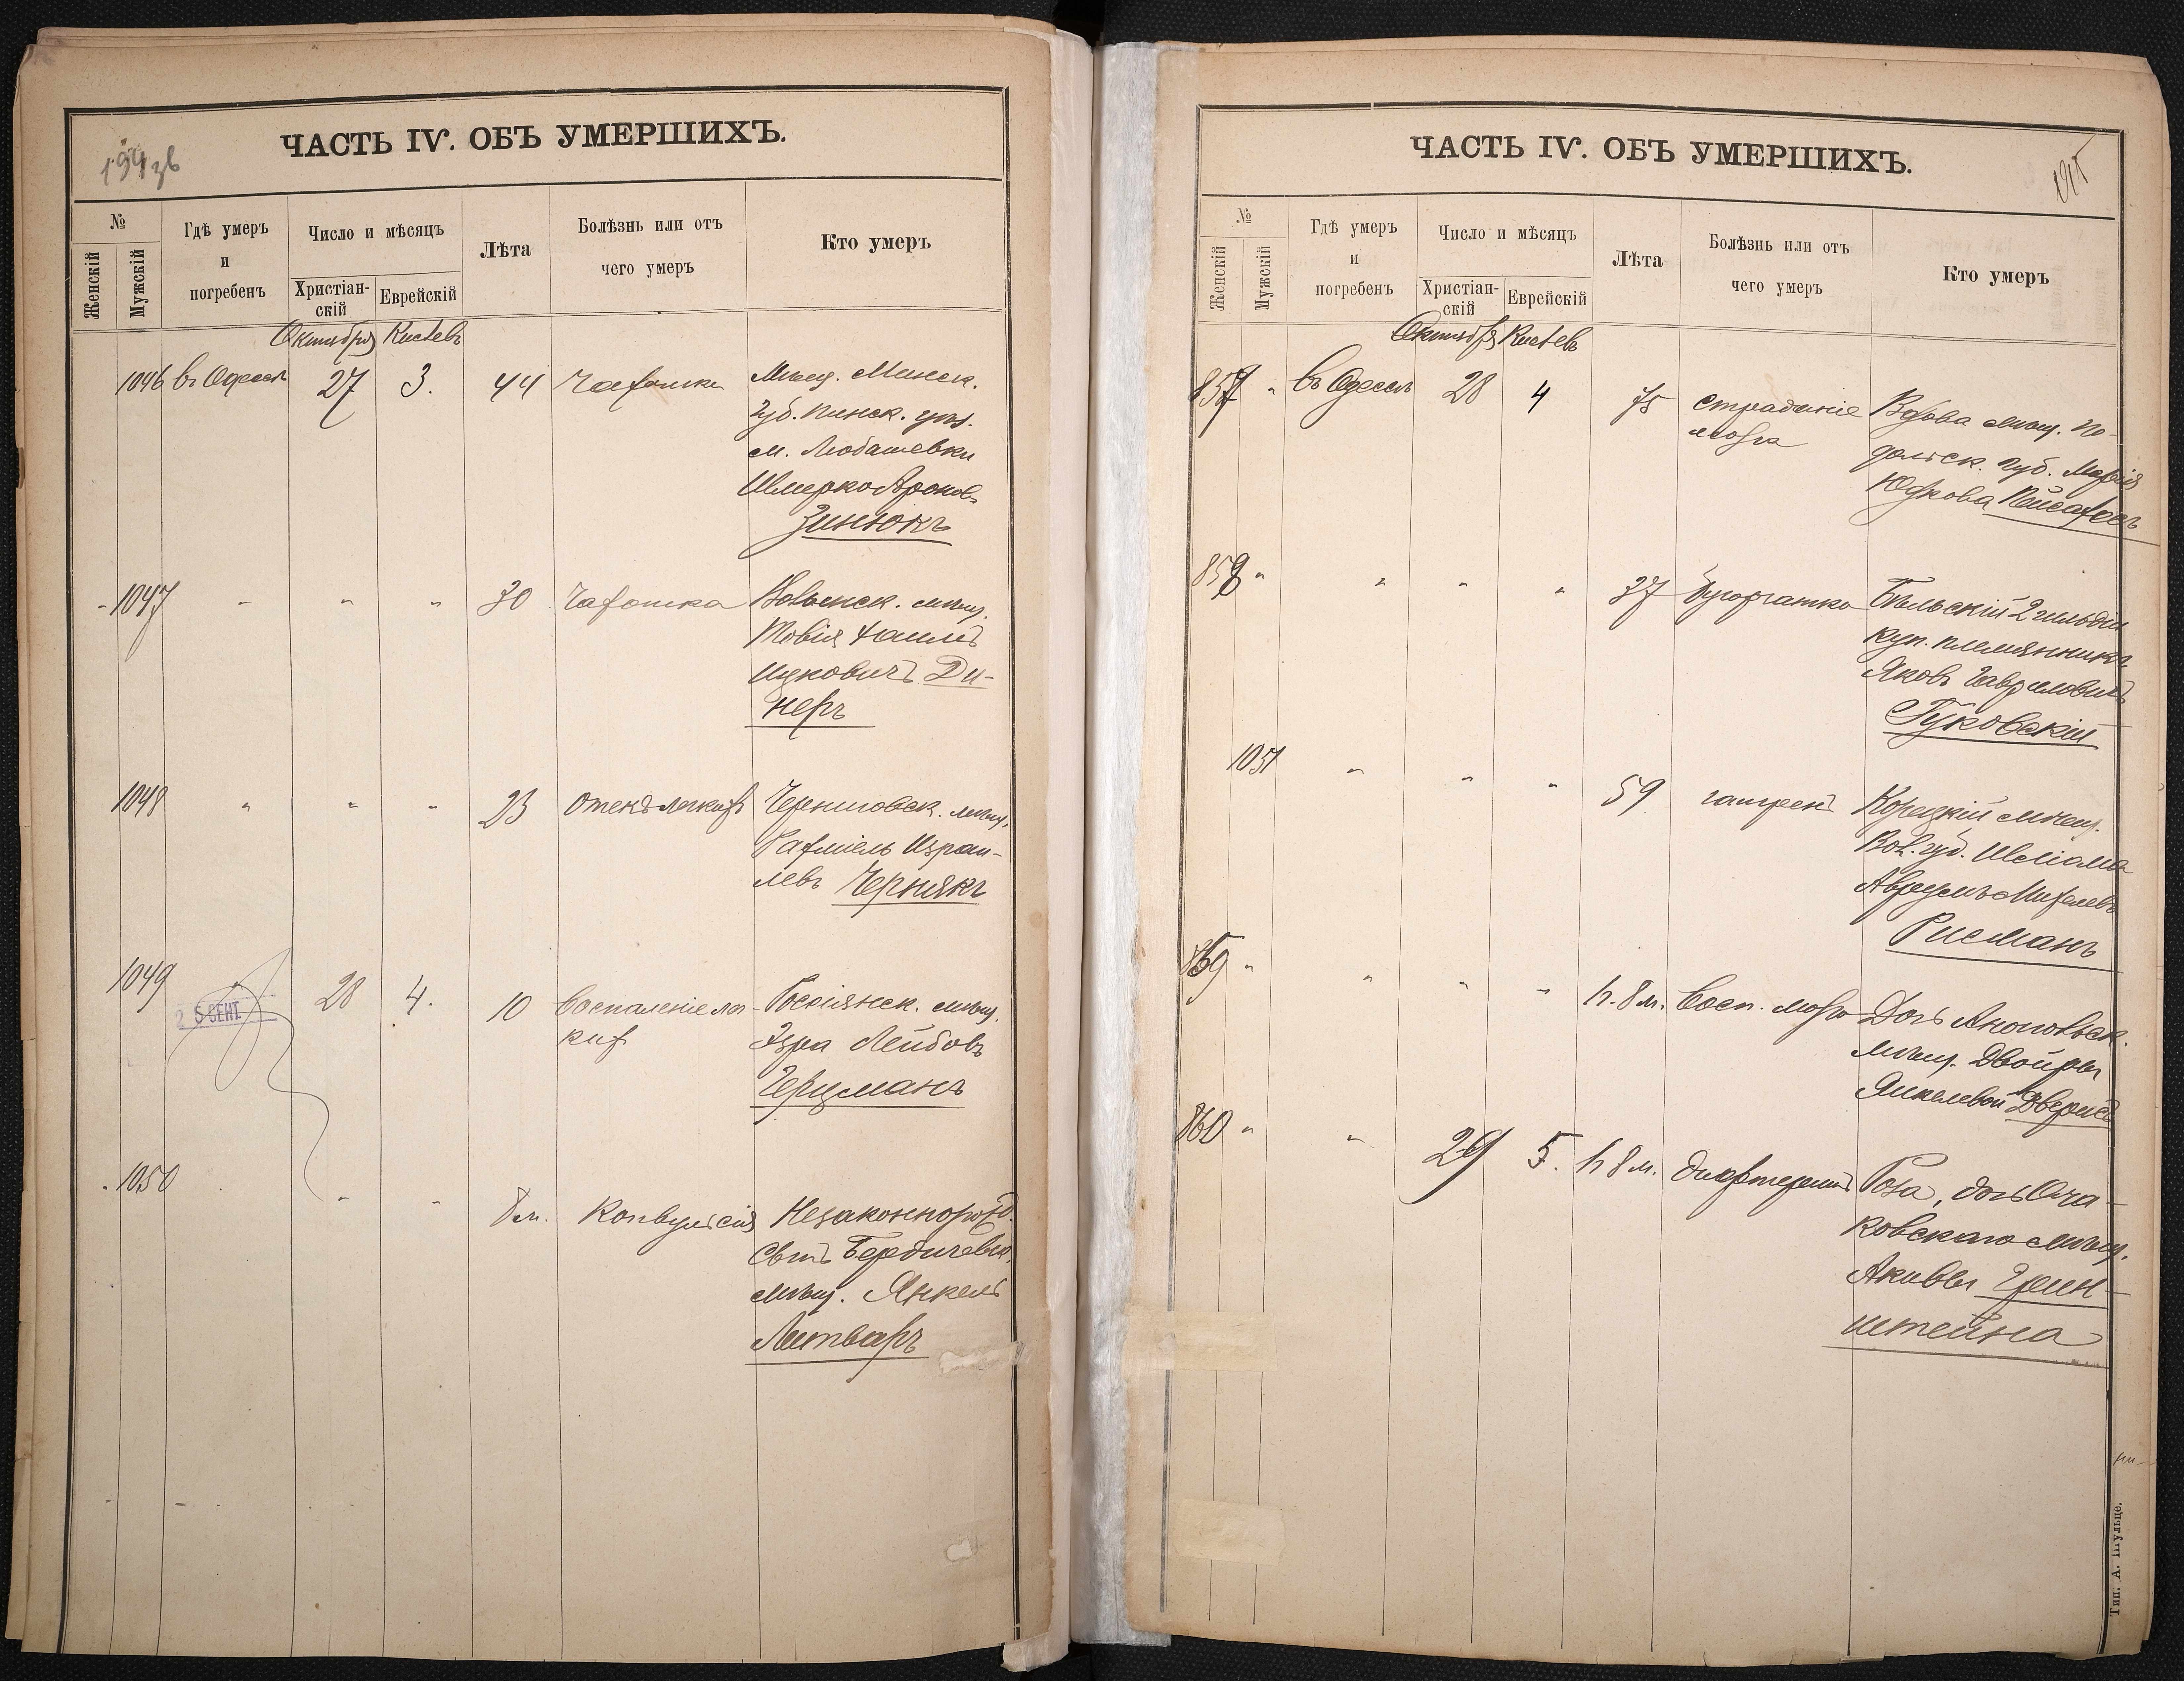 ЧАСТЬ IV. ОБЪ УМЕРШИХЪ.
№
Женскій
Мужскій
Гдѣ умеръ
и
погребенъ
Число и мѣсяцъ
Христіан-
скій
Еврейскій
Лѣта
Болѣзнь или отъ
чего умеръ
Кто умеръ
Октября Кислевъ
1046 въ Одессѣ 27 3. 44 Чахотка Мѣщ. Минск.
Губ. Пинск. уѣз.
м. Любашевки
Шмерко Аронов.
Зинюкъ
1047 " " " 30 Чахотка Волынск. мѣщ.
Товія
Ицковичъ Ди-
неръ
1048 " " " 23 Отекъ легкихъ Черниговск. мѣщ.
Рахміель Израи-
левъ Чернякъ
1049 28 4. 10 Воспаленіе лег-
кихъ
25 СЕНТ.
Россіянск. мѣщ.
Эзра Лейбовъ
Герцманъ
1050 " " 8 м. Конвульсія Незаконнорожд.
Сынъ Бердичевск.
мѣщ. Янкель
Литваръ
ЧАСТЬ IV. ОБЪ УМЕРШИХЪ.
№
Женскій
Мужскій
Гдѣ умеръ
и
погребенъ
Число и мѣсяцъ
Христіан-
скій
Еврейскій
Лѣта
Болѣзнь или отъ
чего умеръ
Кто умеръ
Октября Кислевъ
857 " въ Одессѣ 28 4 75 Страданіе
мозга
Вдова мѣщ. По-
дольск. губ. Марія
Юдкова
858 " " " " 37 Бугорчатка Бѣльскій 2 гильдіи
куп. племянникъ
Яковъ Гавриловичъ
Гуковскій
1051 " " " 59 гангрена Корецкій мѣщ.
Вол. губ. Шліома
Аврумъ Михелевъ
Рисманъ
859 " " " " 1 г. 8 м. Восп. мозга Дочь Анопольск.
мѣщ. Двойры
Янкелевой
860 " " 29 5. 1 г 8 м. дифтеритъ Роза, дочь Оча-
ковскаго мѣщ.
Акивы Грин-
штейна
Тип. А. Шульце.